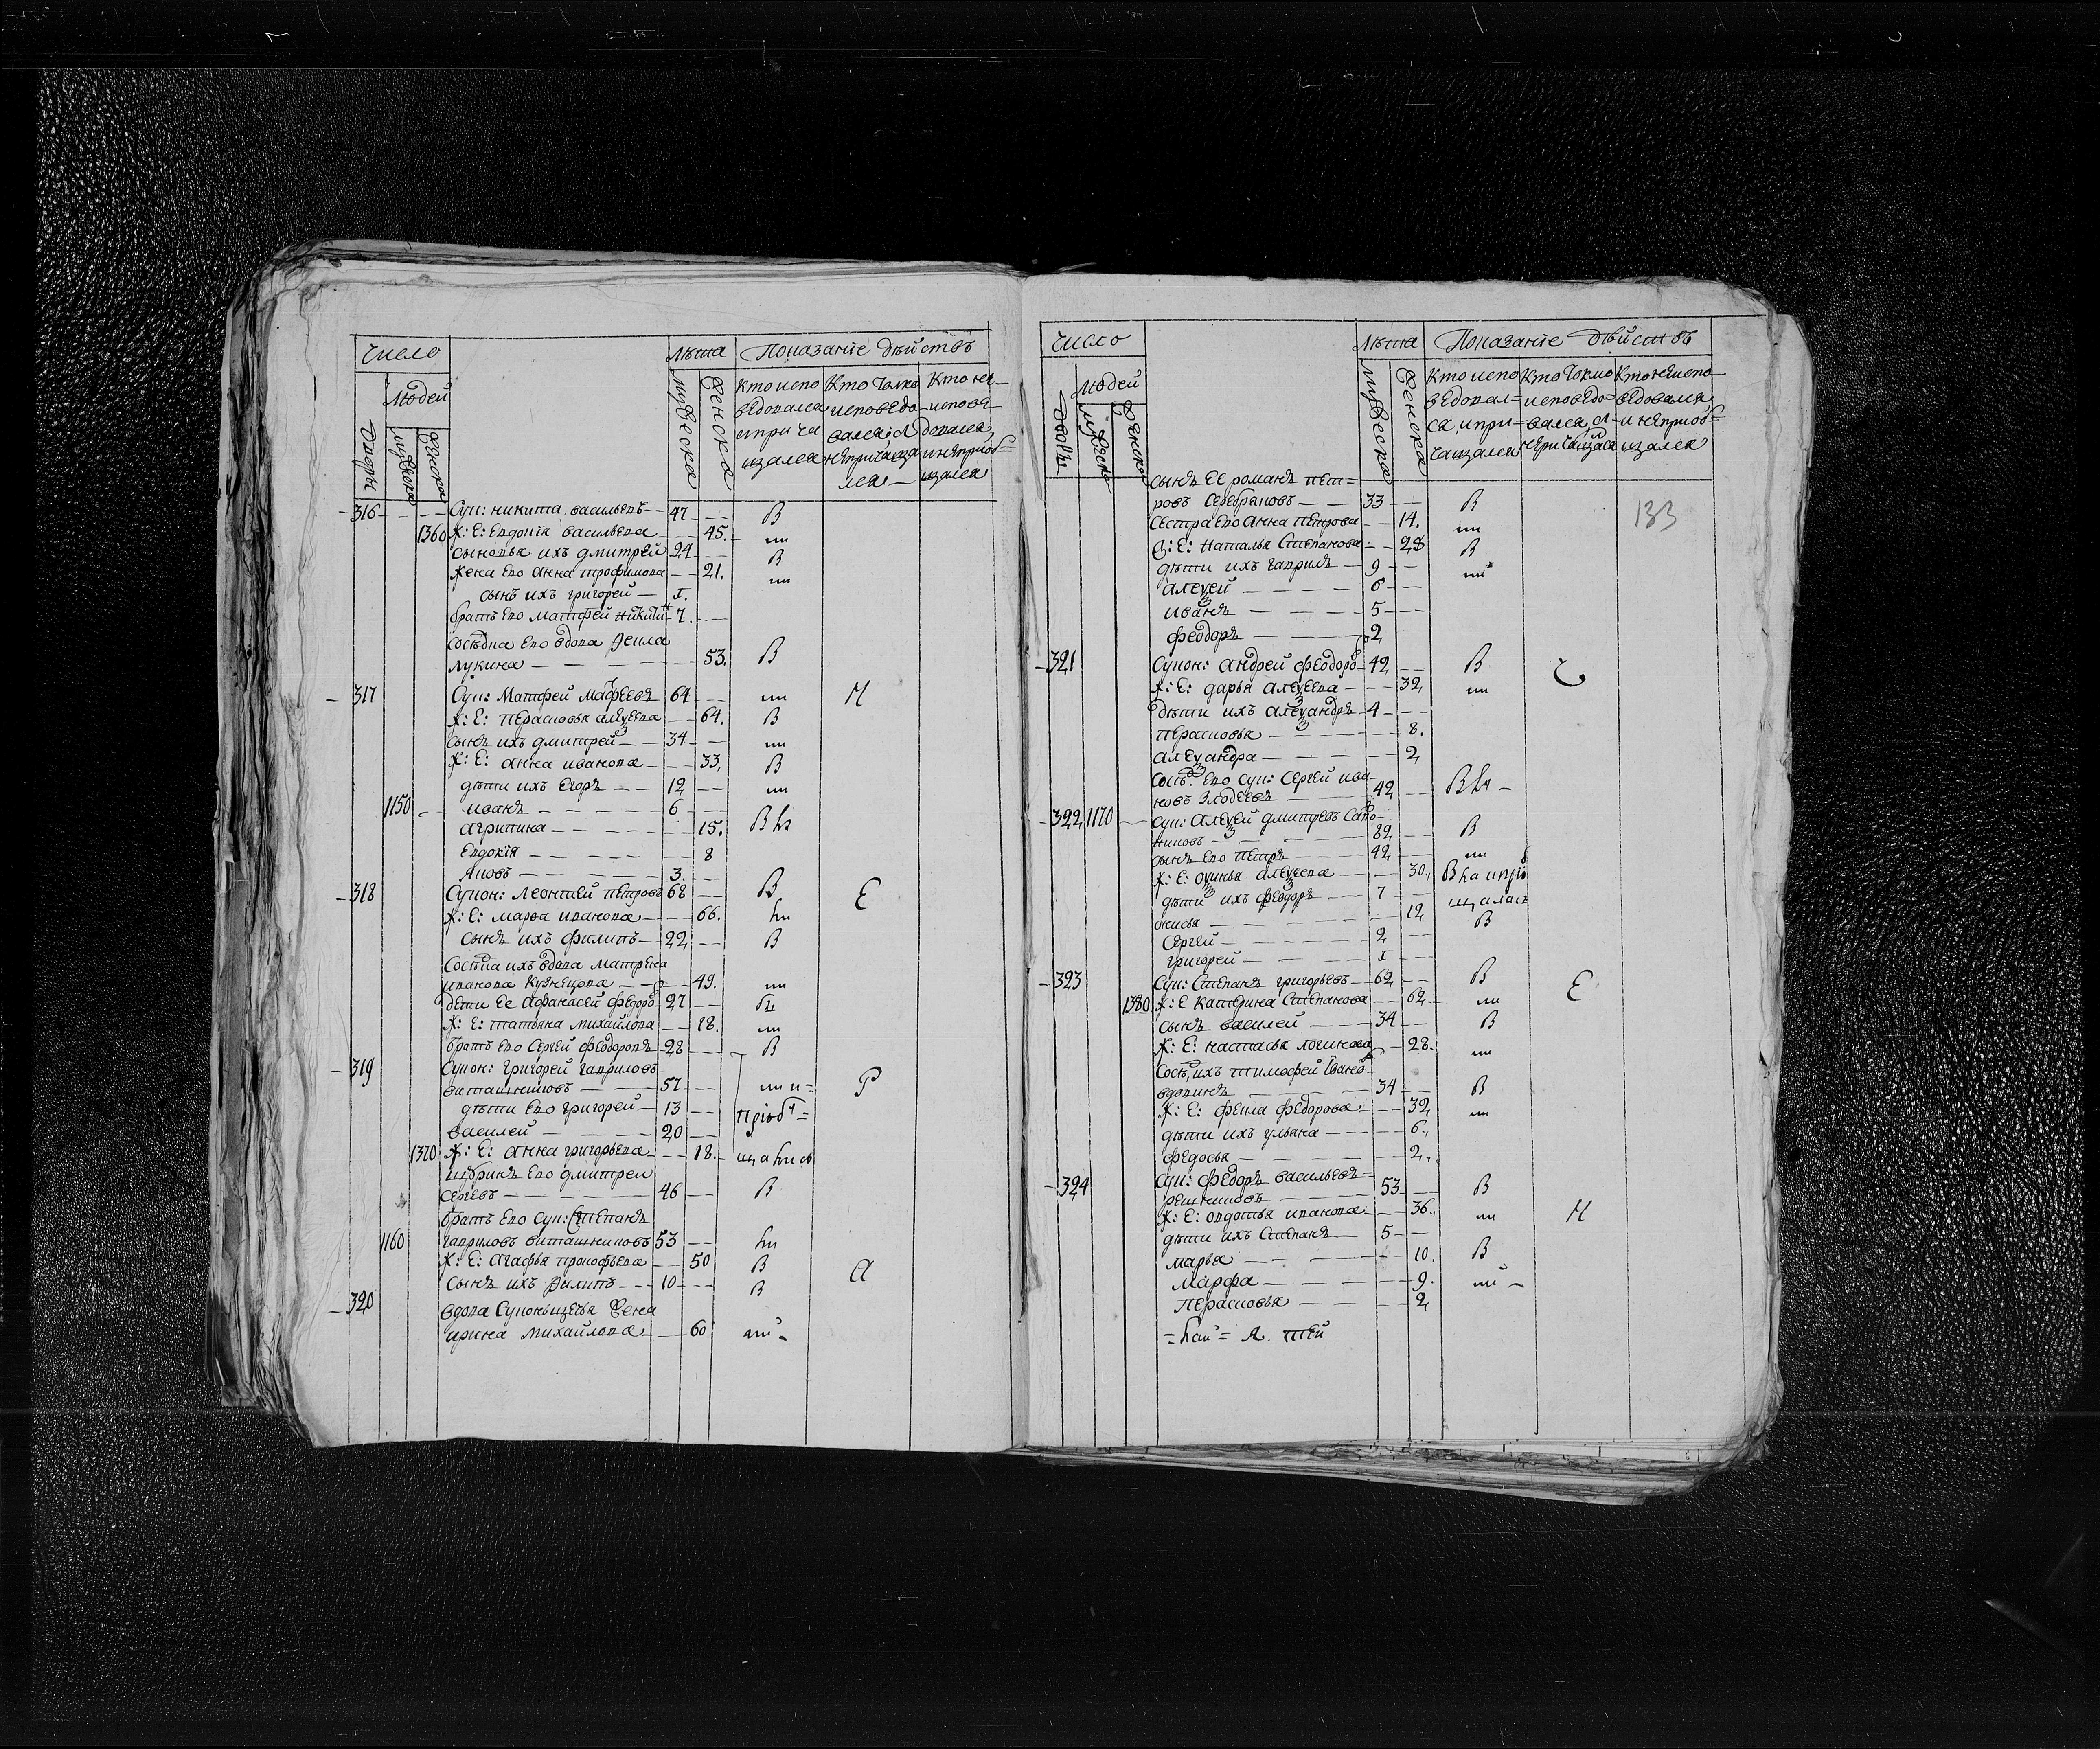 Число
Лѣта Показание Дѣйствъ
Людей
Дворы
мужеска
женска
мужеска
женска
Кто испо
ведовался
и прича
щался
Кто токмо
исповедо
вался, а
непричаща
лся
Кто не
испове
довался
и неприоб=
щался
316 Суп: никита васильевъ 47 В
1360 ж: Е: Евдокiя васильева 45.
сыновья ихъ дмитрей 24 В
жена Его анна трофимова 21.
сынъ ихъ григорей I.
братъ Его матфей никити 7.
соседка Его вдова
лукина 53. В
317 Суп: Матфей Матфеевъ 64 Н
ж: Е: перасковья алеѯеева 64. В
сынъ ихъ дмитрей 34
ж: Е: анна иванова 33, В
дѣти ихъ Егоръ 12
1150 иванъ 6
агрипина 15.
Евдокiя 8
Яковъ 3.
318 Супон: Леонтей петровъ 68 В Е
ж: Е: марѳа иванова 66.
сынъ ихъ филипъ 22 В
соседка ихъ вдова матрена
иванова Кузнецова 49.
дети Ее афанасей федоро 27
ж: Е: татьяна михайлова 18.
братъ Его Сергей феодоровъ 28 В
319 Супон: григорей гавриловъ
виташниковъ 57 Р
дѣти Его григорей 13 прiоб
василей 20
1370 ж: Е: анна григорьева 18.
шуринъ Его дмитрей
сергевъ 46 В
братъ Его Суп: Степанъ
1160 гавриловъ виташниковъ 53
ж: Е: агафья прокофьева 50 В а
сынъ ихъ филипъ 10 В
320 вдова Супоньщецкая жена
ирина михайлова 60
Число
Лѣта Показание Дѣйствъ
Людей
Дворы
мужеска
женска
мужеска
женска
Кто испо
ведовал=
ся, и при=
чащался
Кто токмо
исповедо=
вался, а
непричащалса
Кто неиспо
ведовался
и неприоб=
щался
133
сынъ ЕЕ романъ пет=
ровъ серебряковъ 33 В
сестра Его анна петрова 14.
ж: Е: наталья Степанова 28 В
дѣти ихъ гаврилъ 9
алеѯей 6
иванъ 5
феодоръ 2
321 Супон: андрей феодоро 42 В С
ж: Е: дарья алеѯеева 32,
дѣти ихъ алеѯандръ 4
перасковья 8.
алеѯандра 2,
сосѣд Его суп: сергей ива
новъ Злодеевъ 42
322 1170 суп: алеѯей дмитревъ сапо
никовъ 82 В
сынъ Его петръ 42
ж: Е: аѯинья алеѯеева 30,
дѣти ихъ феодоръ 7
анисья 12 В
сергей 2
григорей I
323 Суп: степанъ григорьевъ 62 В Е
1380 ж: Е катерина степанова 62
сынъ василей 34 В
ж: Е: настасья логинова 28.
сосѣд, ихъ тимофей ивано
вдовинъ 34 В
ж: Е: фекла федорова 32
дѣти ихъ ульяна 6.
федосья 2
324 суп: федоръ васильевъ=
решниковъ 53 В
ж: Е: авдотья иванова 36. Н
дѣти ихъ степанъ 5
марья 10. В
марфа 9.
перасковья 2,